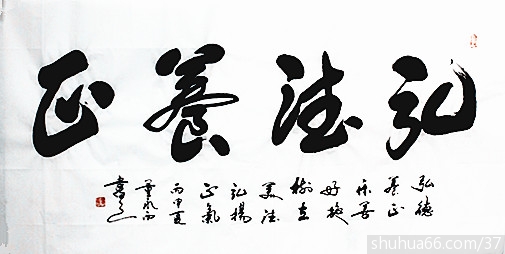 弘德養正
弘德
养正
乐善
好施
樹立
美德
弘揚
正氣
丙申夏
shuhua66.com/37